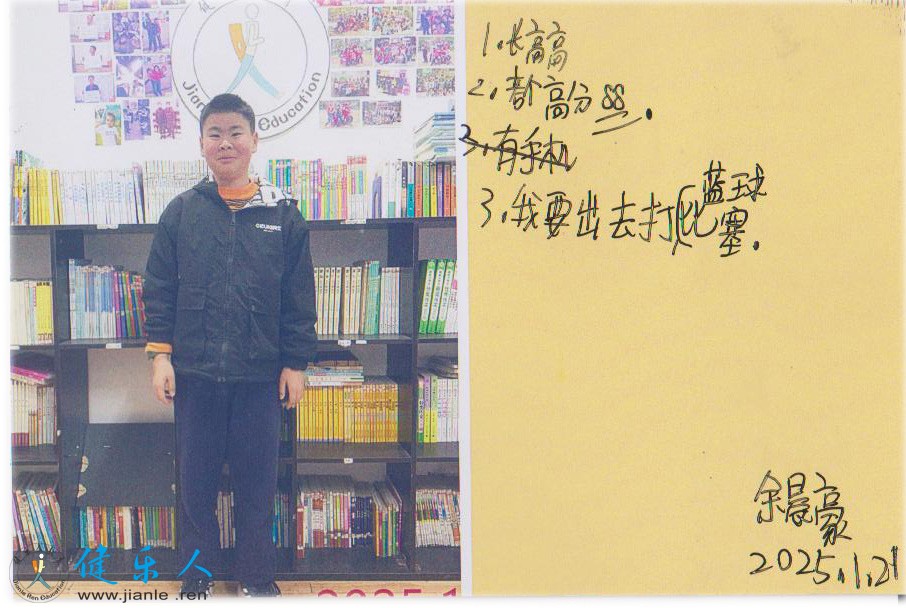 Jianle
Education
1.长高高
2.都高分88.
3.有手机
3.我要出去打蓝球比塞.
余晨豪
2025.1.21
健乐人
www.jianle .ren
Jianle Ren Education